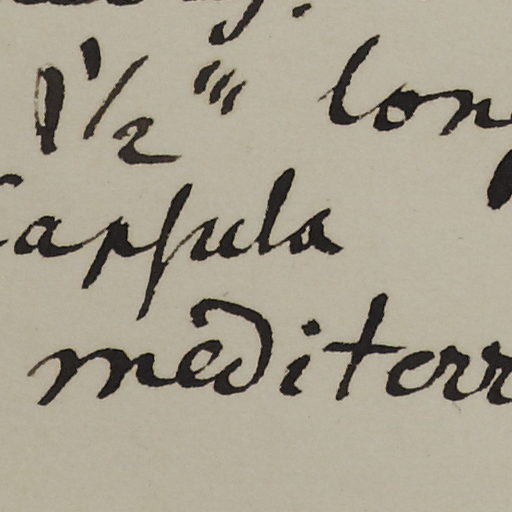 1 1/2''' long
Capſula
mediterr